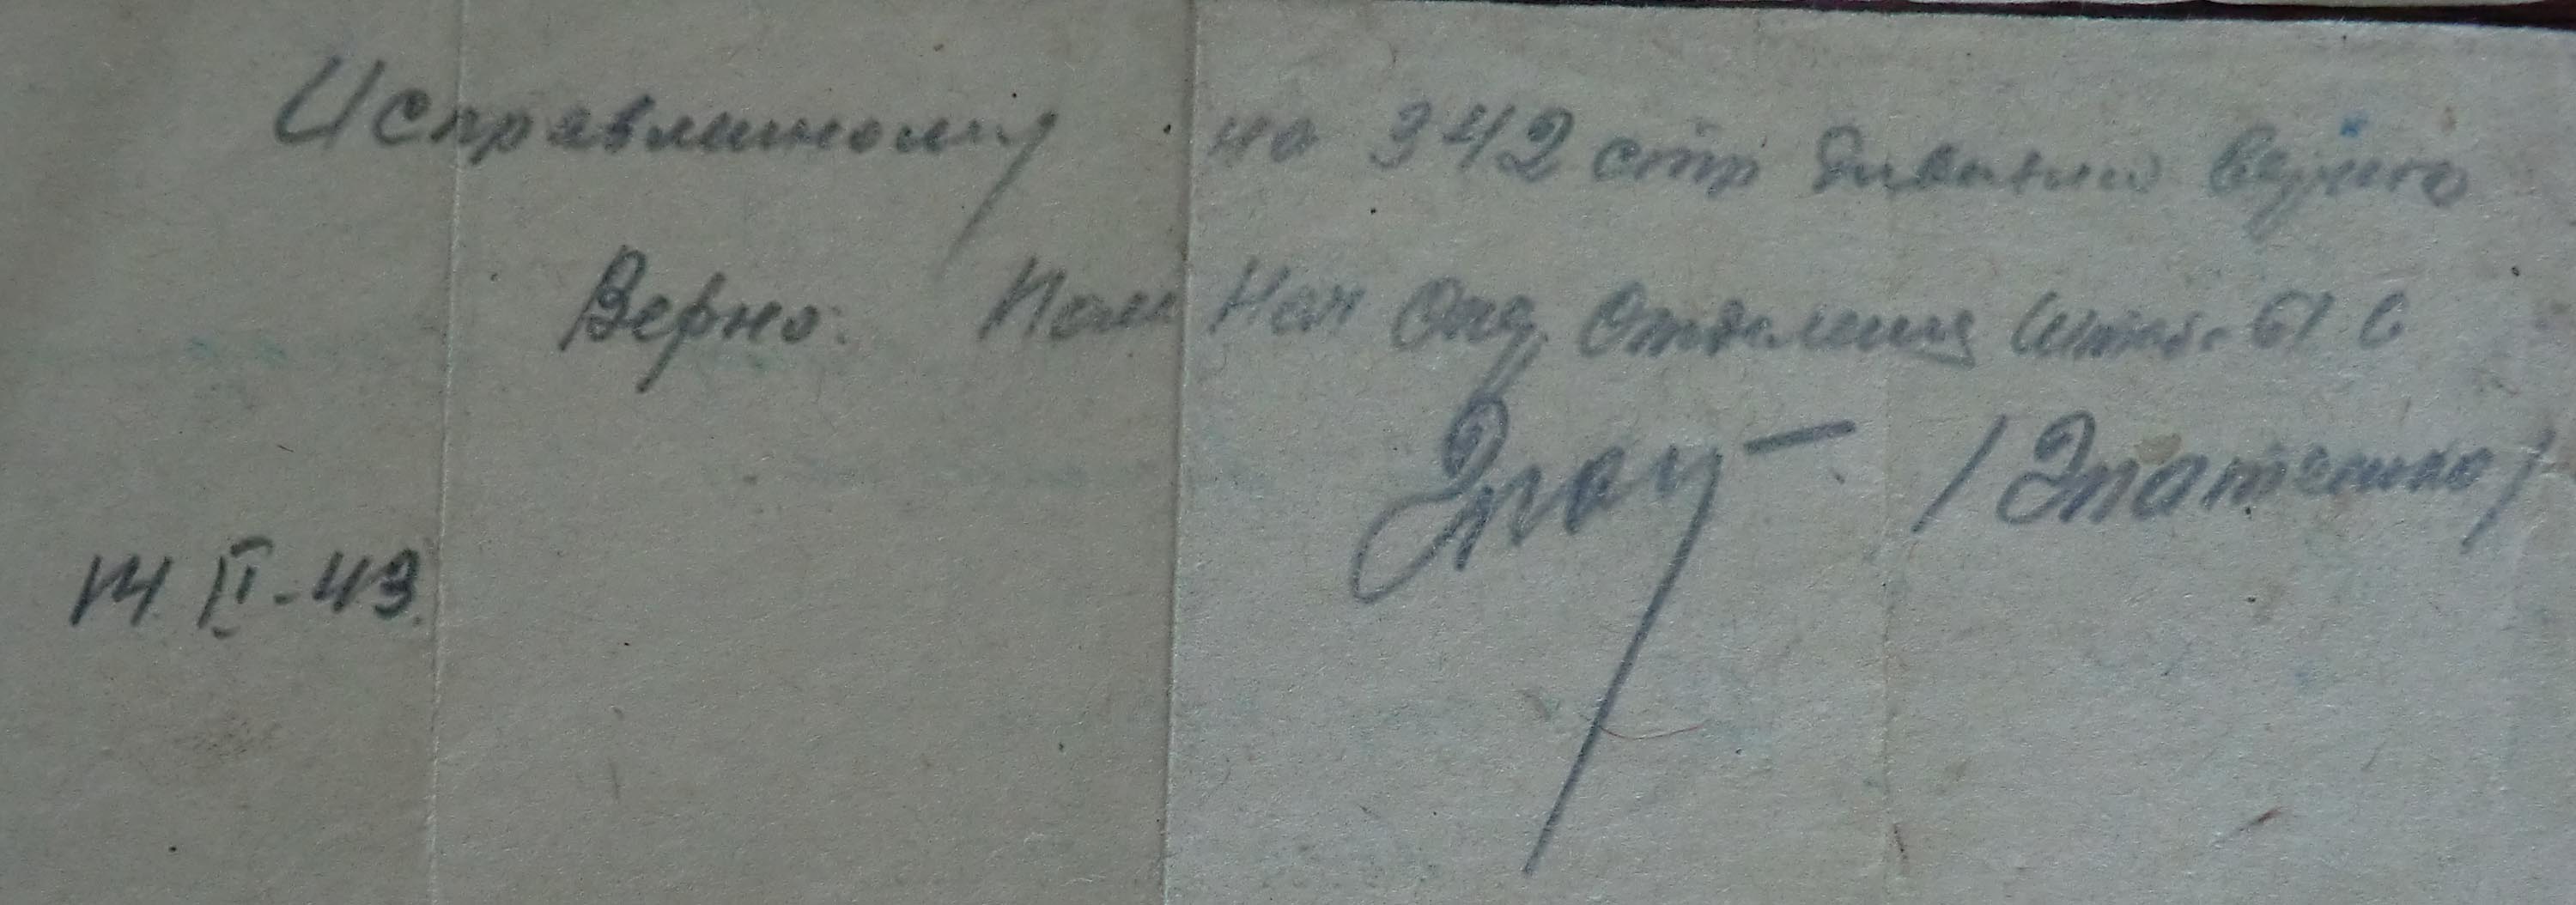 Исправлиному на 342 стр дивизии верить
Верно. Пом Нач Опд. Отделения Штаба 61 с
/Зпатченко/
14. II-43.